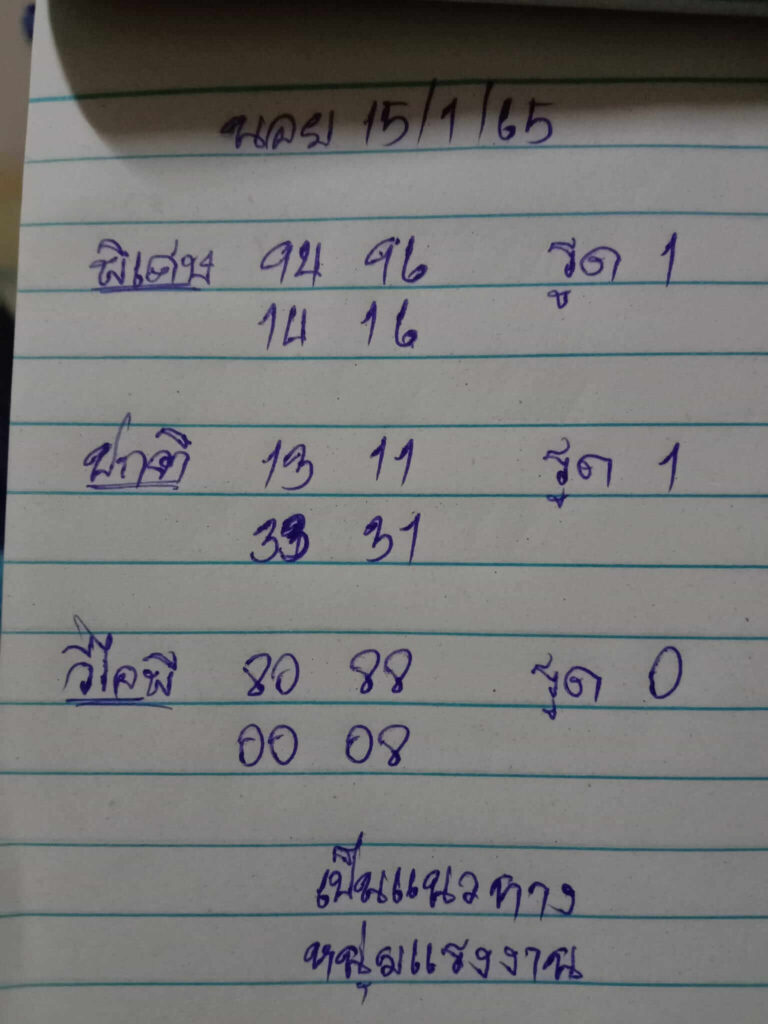 นอย 15/1/65
พิเศษ 94 96 รูด 1
14 16
ปกติ 13 11 รูด 1
33 31
วีไอพี 80 88 รูด 0
00 08
เป็นแนวทาง
หนุ่มแรงงาน